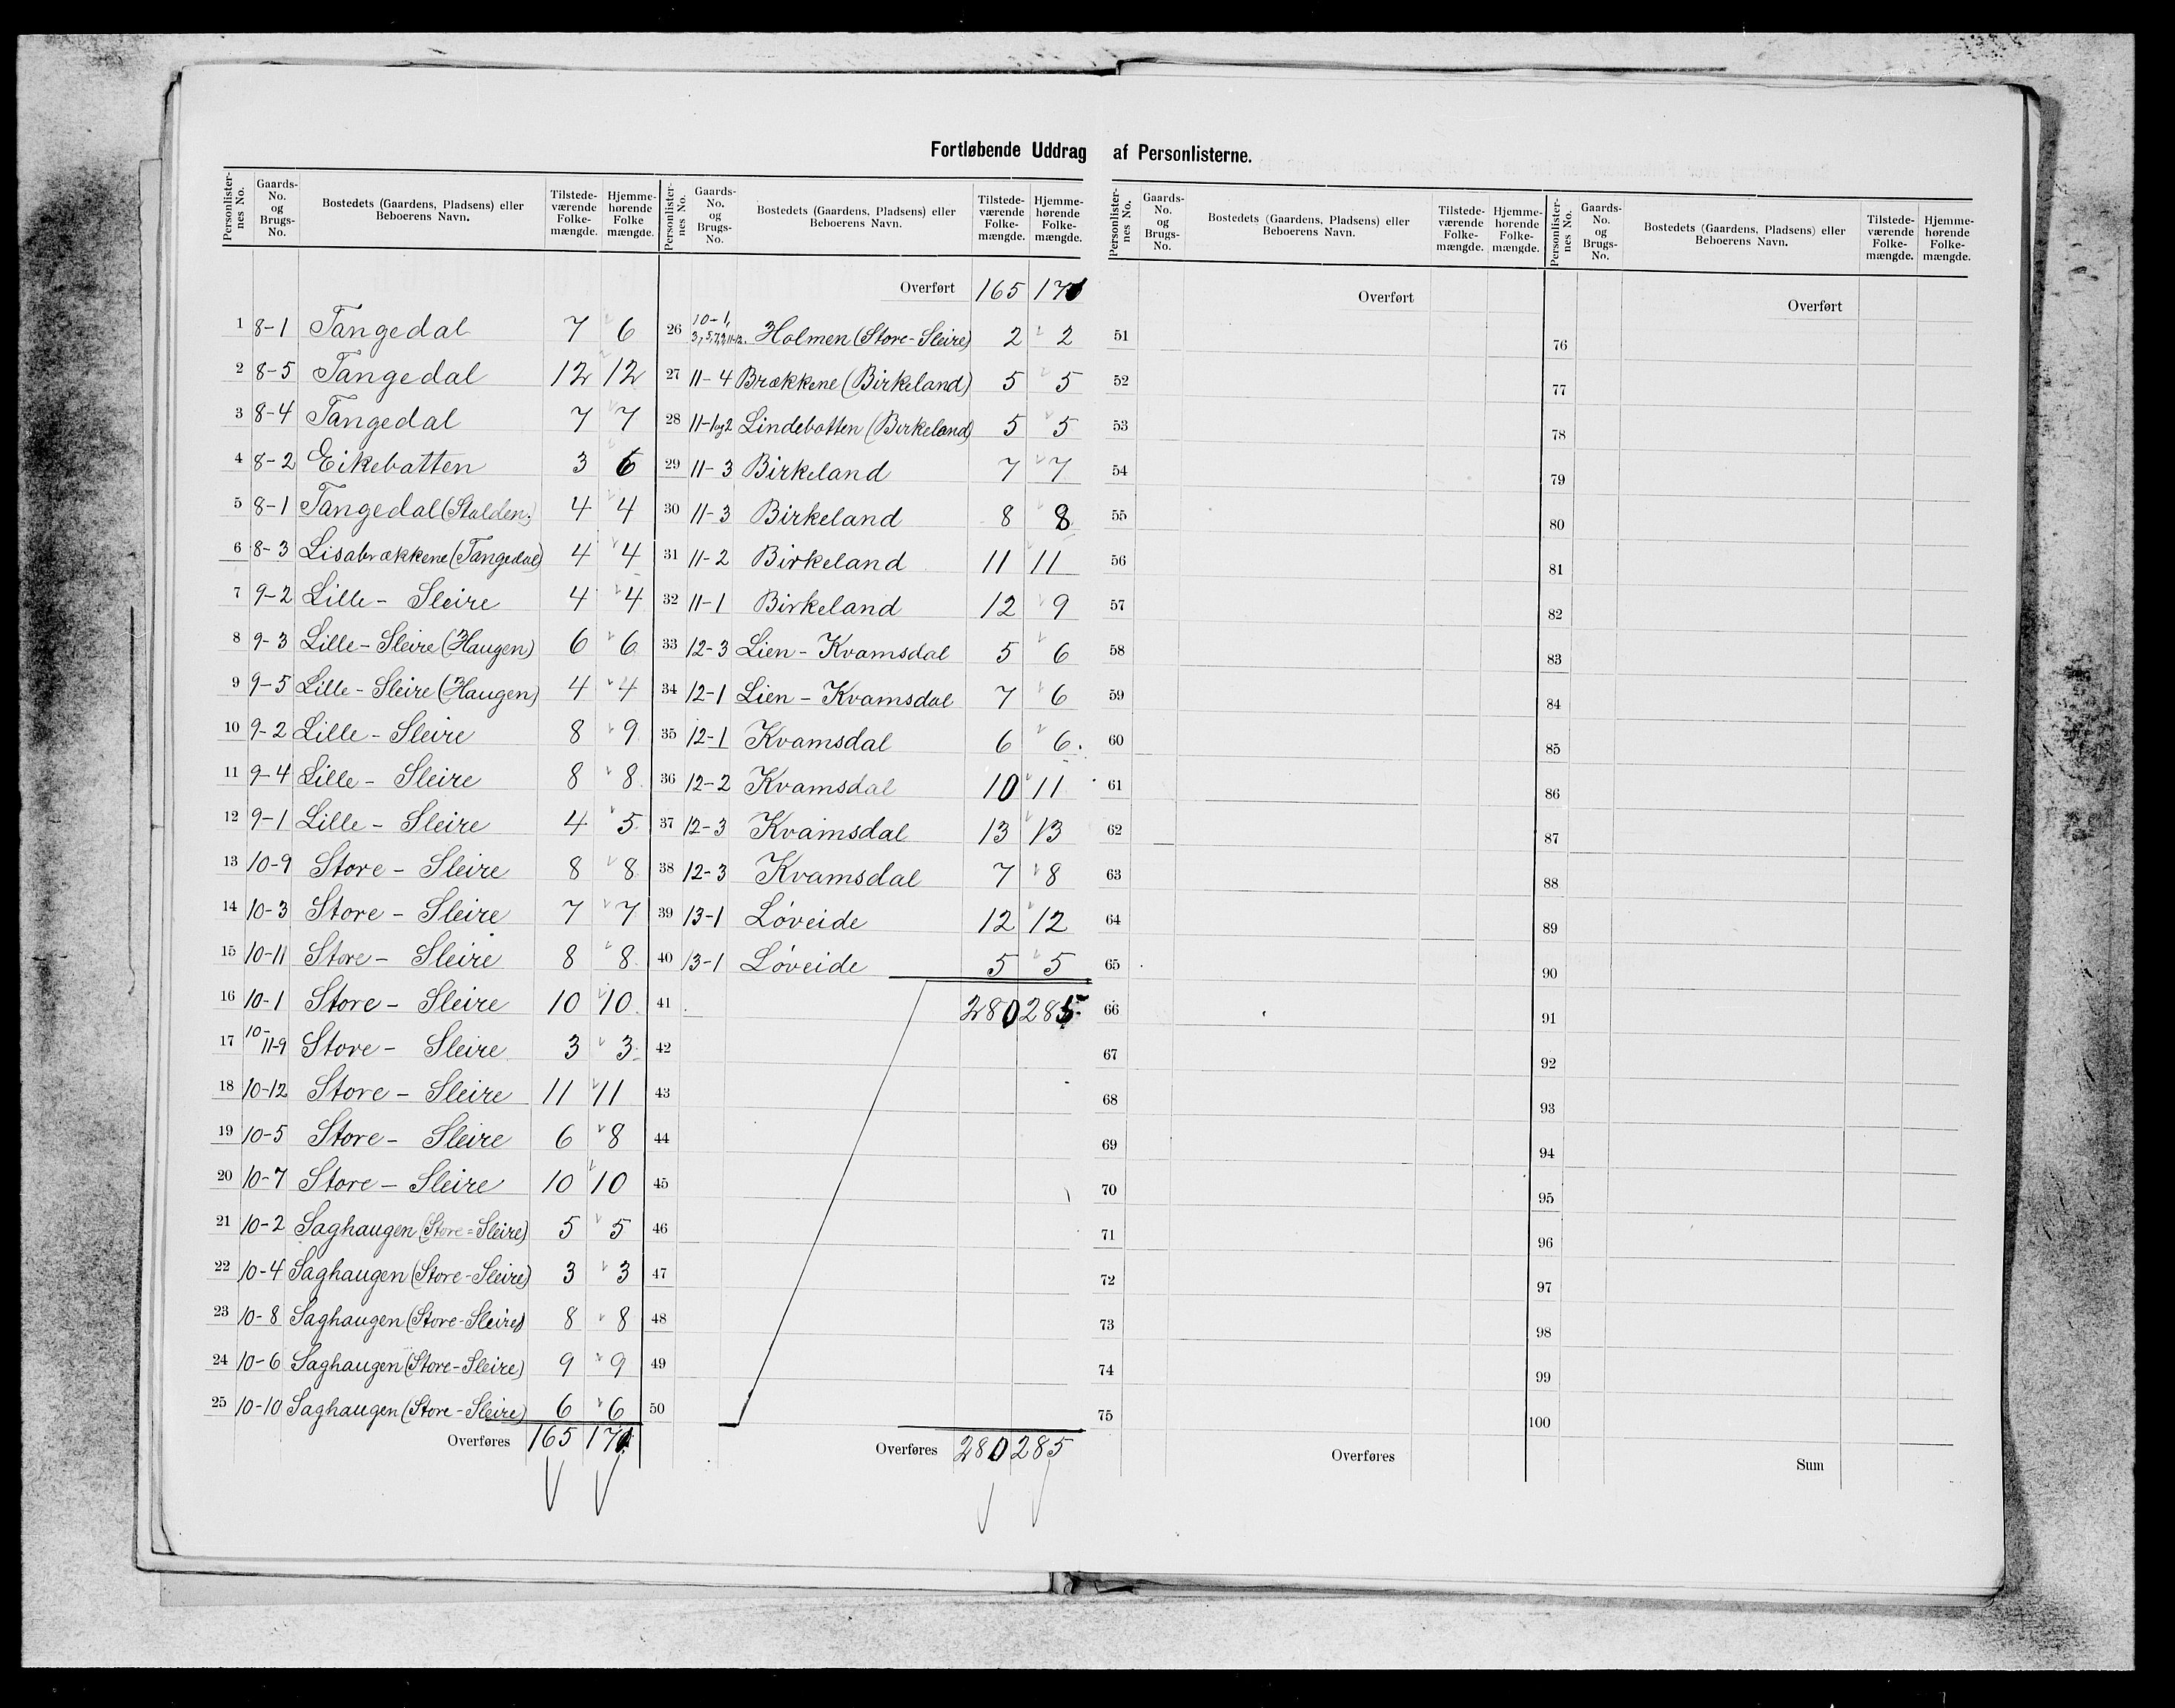 Fortløbende Uddrag af Personlisterne.
Personlister-nes No. Gaards-No. og Brugs-No. Bostedets (Gaardens, Pladsens) eller Beboerens Navn. Tilstede-værende Folke-mængde. Hjemme-hørende Folke mængde.
1 8-1 Tangedal 7 6
2 8-5 Tangedal 12 12
3 8-4 Tangedal 7 7
4 8-2 Eikebotten 3 6
5 8-1 Tangedal (Stølden) 4 4
6 8-3 Lisabrækkene (Tangedal) 4 4
7 9-2 Lille- Sleire 4 4
8 9-3 Lille-Sleire (Haugen) 6 6
9 9-5 Lille-Sleire (Haugen) 4 4
10 9-2 Lille-Sleire 8 9
11 9-4 Lille- Sleire 8 8
12 9-1 Lille- Sleire 4 5
13 10-9 Store- Sleire 8 8
14 10-3 Store- Sleire 7 7
15 10-11 Store- Sleire 8 8
16 10-1 Store- Sleire 10 10
17 10-11-9 Store- Sleire 3 3
18 10-12 Store- Sleire 11 11
19 10-5 Store- Sleire 6 8
20 10-7 Store- Sleire 10 10
21 10-2 Saghaugen (Store=Sleire) 5 5
22 10-4 Saghaugen (Store-Sleire) 3 3
23 10-8 Saghaugen (Store-Sleire) 8 8
24 10-6 Saghaugen (Store-Sleire) 9 9
25 10-10 Saghaugen (Store-Sleire) 6 6
Overføres 165 171
Personlister-nes No. Gaards-No. og Brugs-No. Bostedets (Gaardens, Pladsens) eller Beboerens Navn. Tilstede-værende Folke-mængde. Hjemme-hørende Folke-mængde.
Overført 165 171
26 10-1, 3,5,7,9,11-12. Holmen (Store-Sleire) 2 2
27 11-4 Brækkene (Birkeland) 5 5
28 11-1og2 Lindebotten (Birkeland) 5 5
29 11-3 Birkeland 7 7
30 11-3 Birkeland 8 8
31 11-2 Birkeland 11 11
32 11-1 Birkeland 12 9
33 12-3 Lien-Kvamsdal 5 6
34 12-1 Lien-Kvamsdal 7 6
35 12-1 Kvamsdal 6 6.
36 12-2 Kvamsdal 10 11
37 12-3 Kvamsdal 13 13
38 12-3 Kvamsdal 7 8
39 13-1 Løveide 12 12
40 13-1 Løveide 5 5
41 280 285
42
43
44
45
46
47
48
49
50
Overføres 280 285
Personlister-nes No. Gaards-No. og Brugs-No. Bostedets (Gaardens, Pladsens) eller Beboerens Navn. Tilstede-værende Folke-mængde. Hjemme-hørende Folke-mængde.
Overført
51
52
53
54
55
56
57
58
59
60
61
62
63
64
65
66
67
68
69
70
71
72
73
74
75
Overføres
Personlister-nes No. Gaards-No. og Brugs-No. Bostedets (Gaardens, Pladsens) eller Beboerens Navn. Tilstede-værende Folke-mængde. Hjemme-hørende Folke-mængde.
Overført
76
77
78
79
80
81
82
83
84
85
86
87
88
89
90
91
92
93
94
95
96
97
98
99
100
Sum